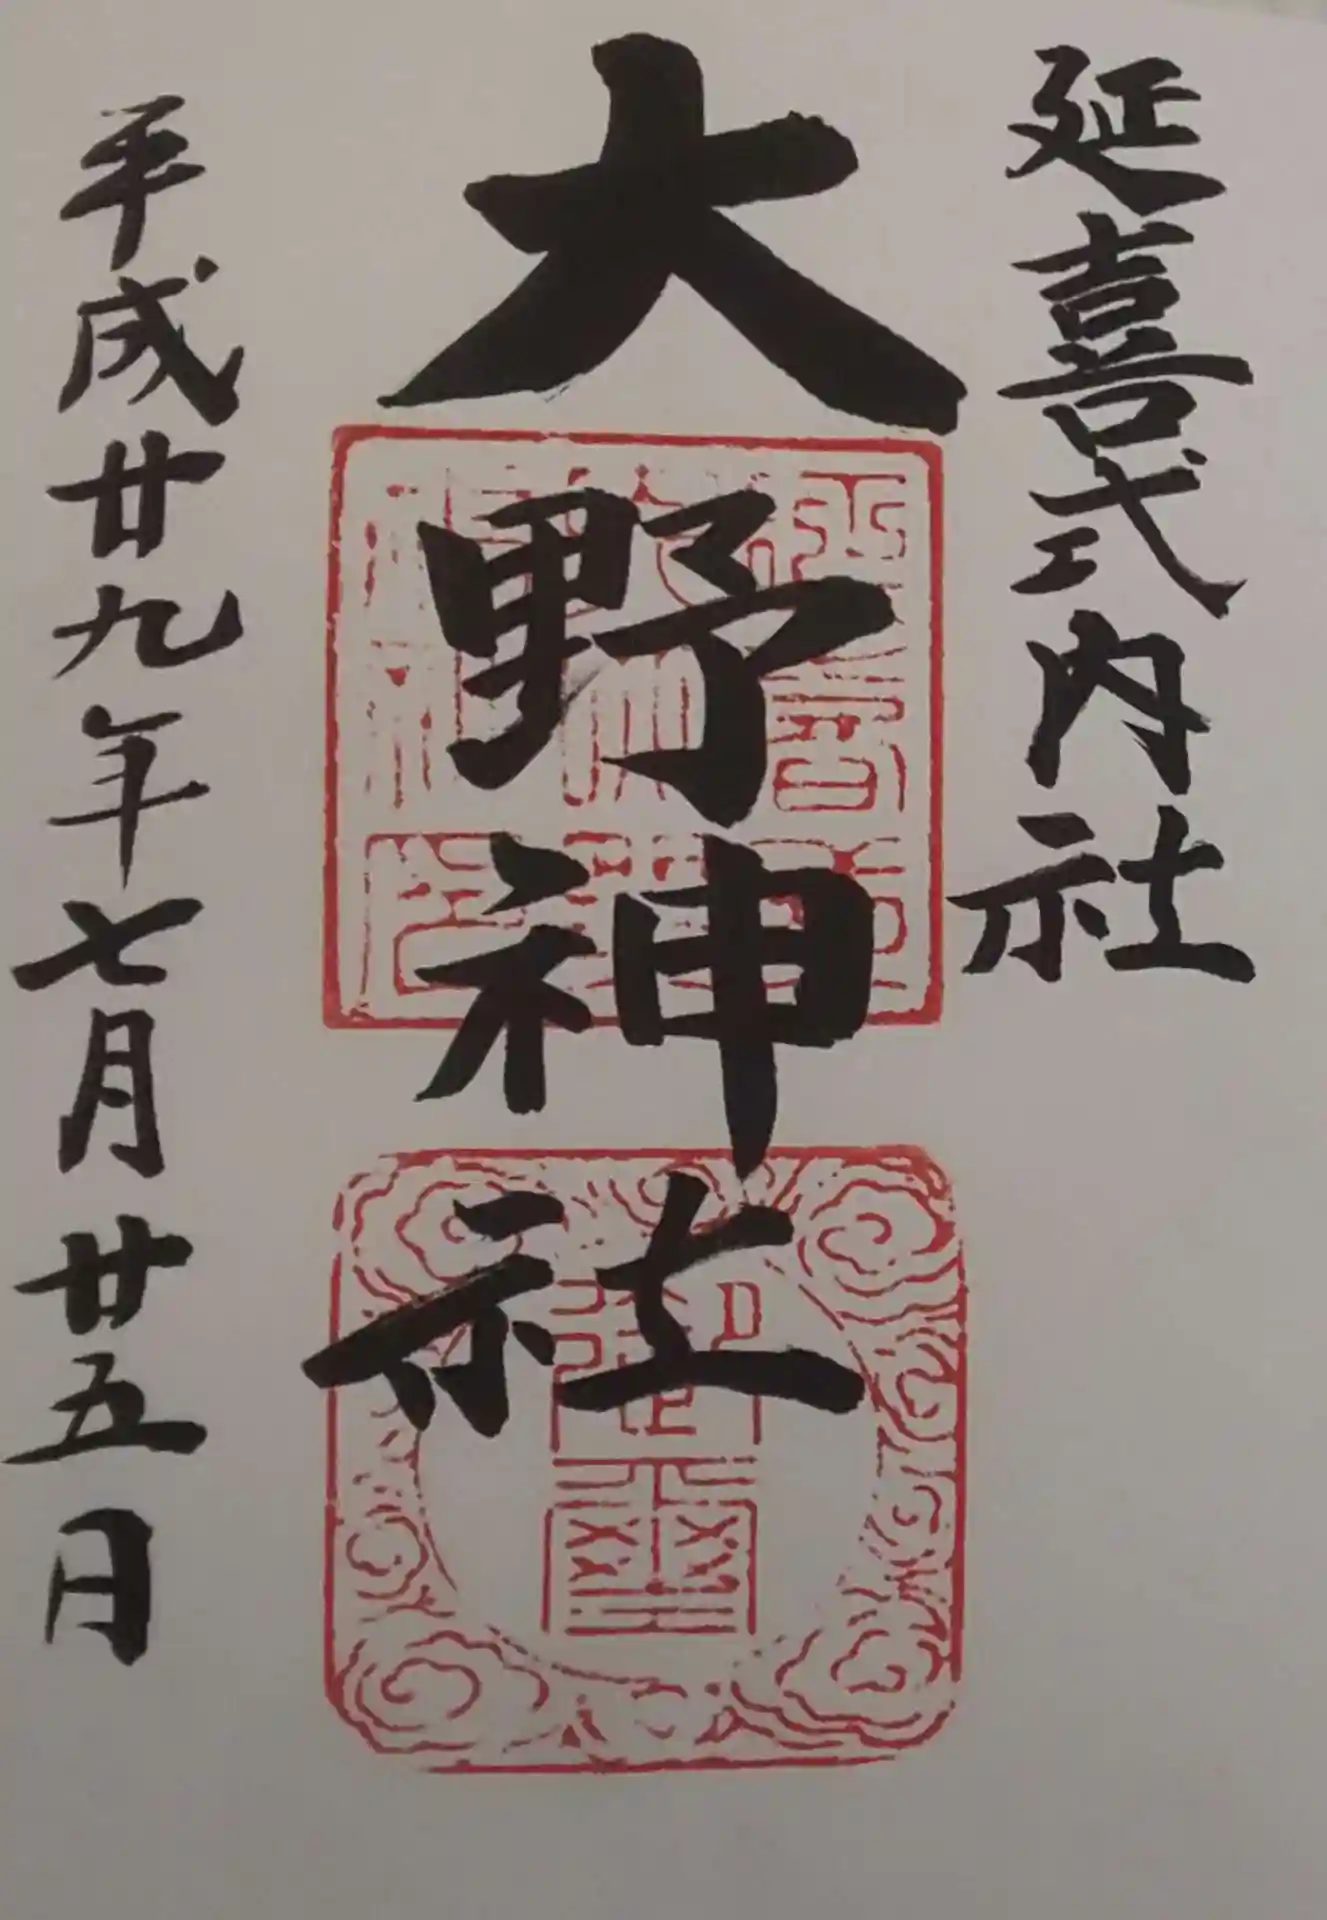 延喜式内社
大野神社
平成廿九年七月廿五日